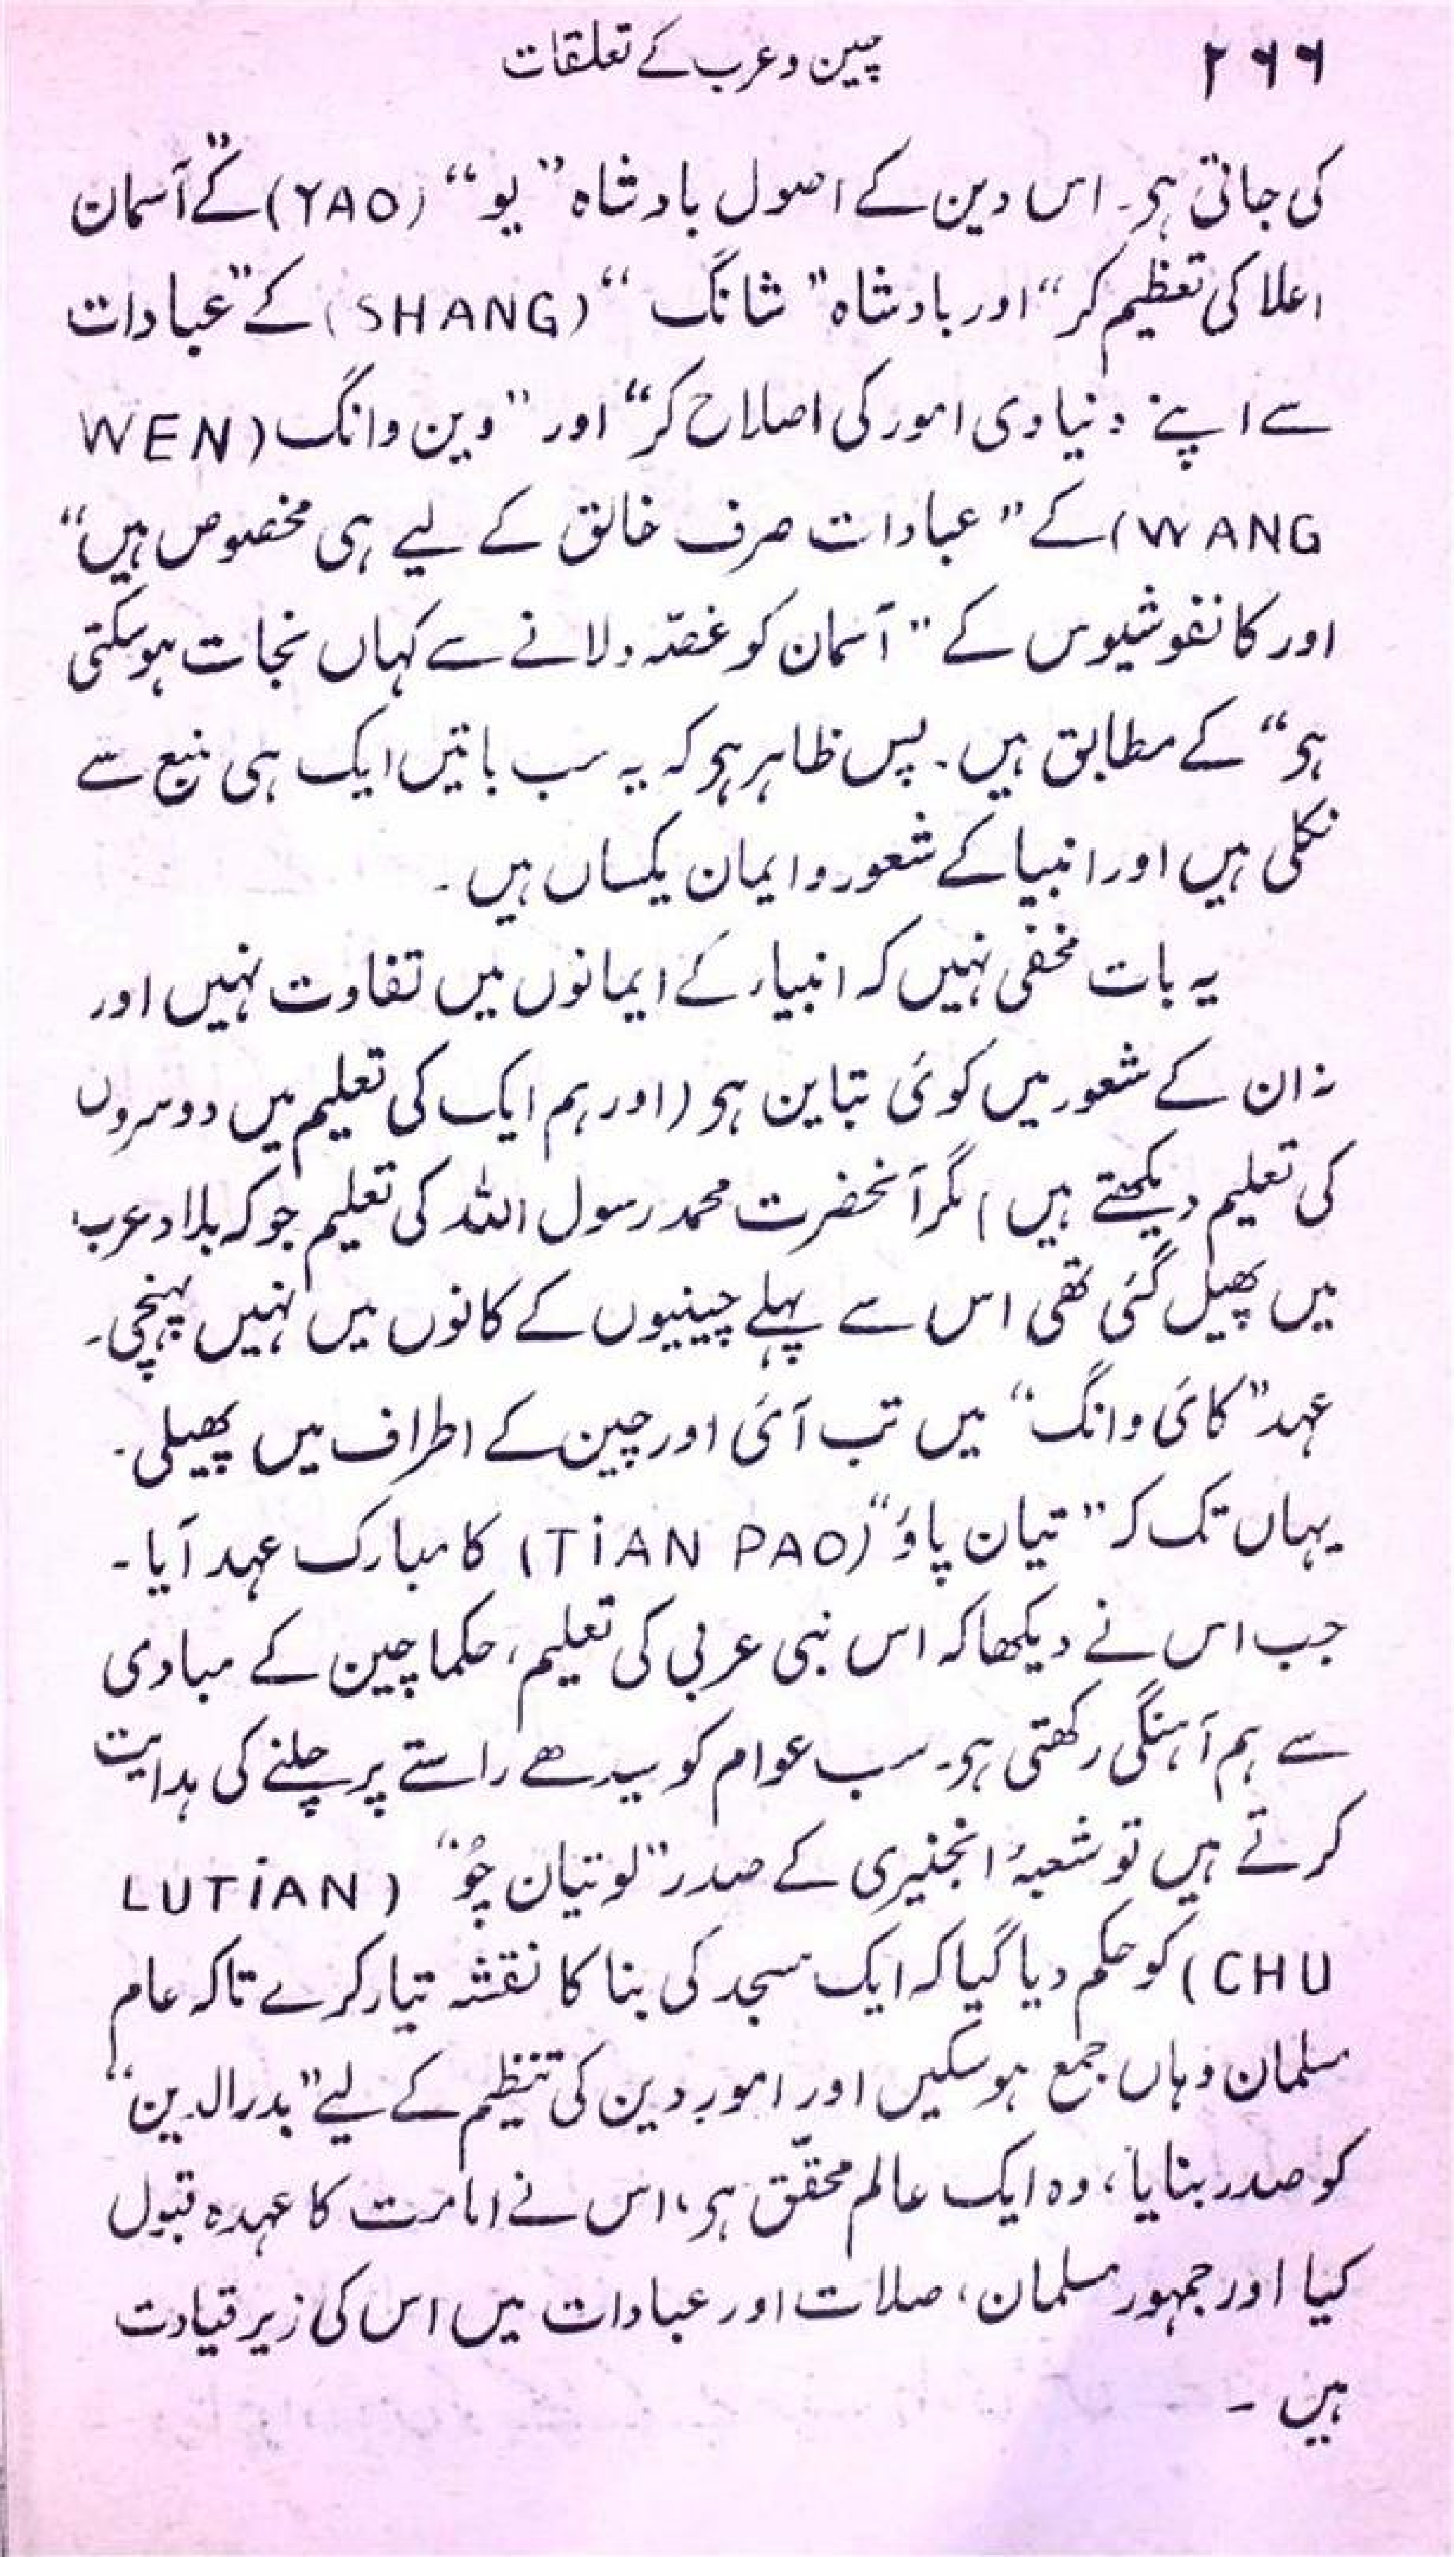 ۲۶۶ چین و عرب کے تعلقات
کی جاتی ہو۔ اس دین کے اصول بادشاہ ”یو“ (YAO) کے ”آسمان
اعلا کی تعظیم کر“ اور بادشاہ ”شانگ“ (SHANG) کے ”عبادات
سے اپنے دنیاوی امور کی اصلاح کر“ اور ”وین وانگ (WEN
WANG) کے ”عبادات صرف خالق کے لیے ہی مخصوص ہیں“
اور کانفوشیوس کے ”آسمان کو غصّہ دلانے سے کہاں نجات ہوسکتی
ہو“ کے مطابق ہیں۔ پس ظاہر ہو کہ یہ سب باتیں ایک ہی منبع سے
نکلی ہیں اور انبیا کے شعور و ایمان یکساں ہیں۔
یہ بات مخفی نہیں کہ انبیار کے ایمانوں میں تفاوت نہیں اور
نہ ان کے شعور میں کوئی تباین ہو (اور ہم ایک کی تعلیم میں دوسروں
کی تعلیم دیکھتے ہیں) مگر آنحضرت محمد رسول اللہ کی تعلیم جو کہ بلاد عرب
میں پھیل گئی تھی اس سے پہلے چینیوں کے کانوں میں نہیں پہنچی۔
عہد ”کائی وانگ“ میں تب آئی اور چین کے اطراف میں پھیلی۔
یہاں تک کہ ”تیان پاؤ“ (TiAN PAO) کا مبارک عہد آیا۔
جب اس نے دیکھا کہ اس نبی عربی کی تعلیم، حکما چین کے مبادی
سے ہم آہنگی رکھتی ہو۔ سب عوام کو سیدھے راستے پر چلنے کی ہدایت
کرتے ہیں تو شعبۂ انجنیری کے صدر ”لوتیان چُو“ (LUTiAN
CHU) کو حکم دیا گیا کہ ایک مسجد کی بنا کا نقشہ تیار کرے تاکہ عام
مسلمان وہاں جمع ہوسکیں اور امور دین کی تنظیم کے لیے ”بدرالدین“
کو صدر بنایا، وہ ایک عالم محقّق ہو، اس نے امامت کا عہدہ قبول
کیا اور جمہور مسلمان، صلات اور عبادات میں اس کی زیر قیادت
ہیں۔